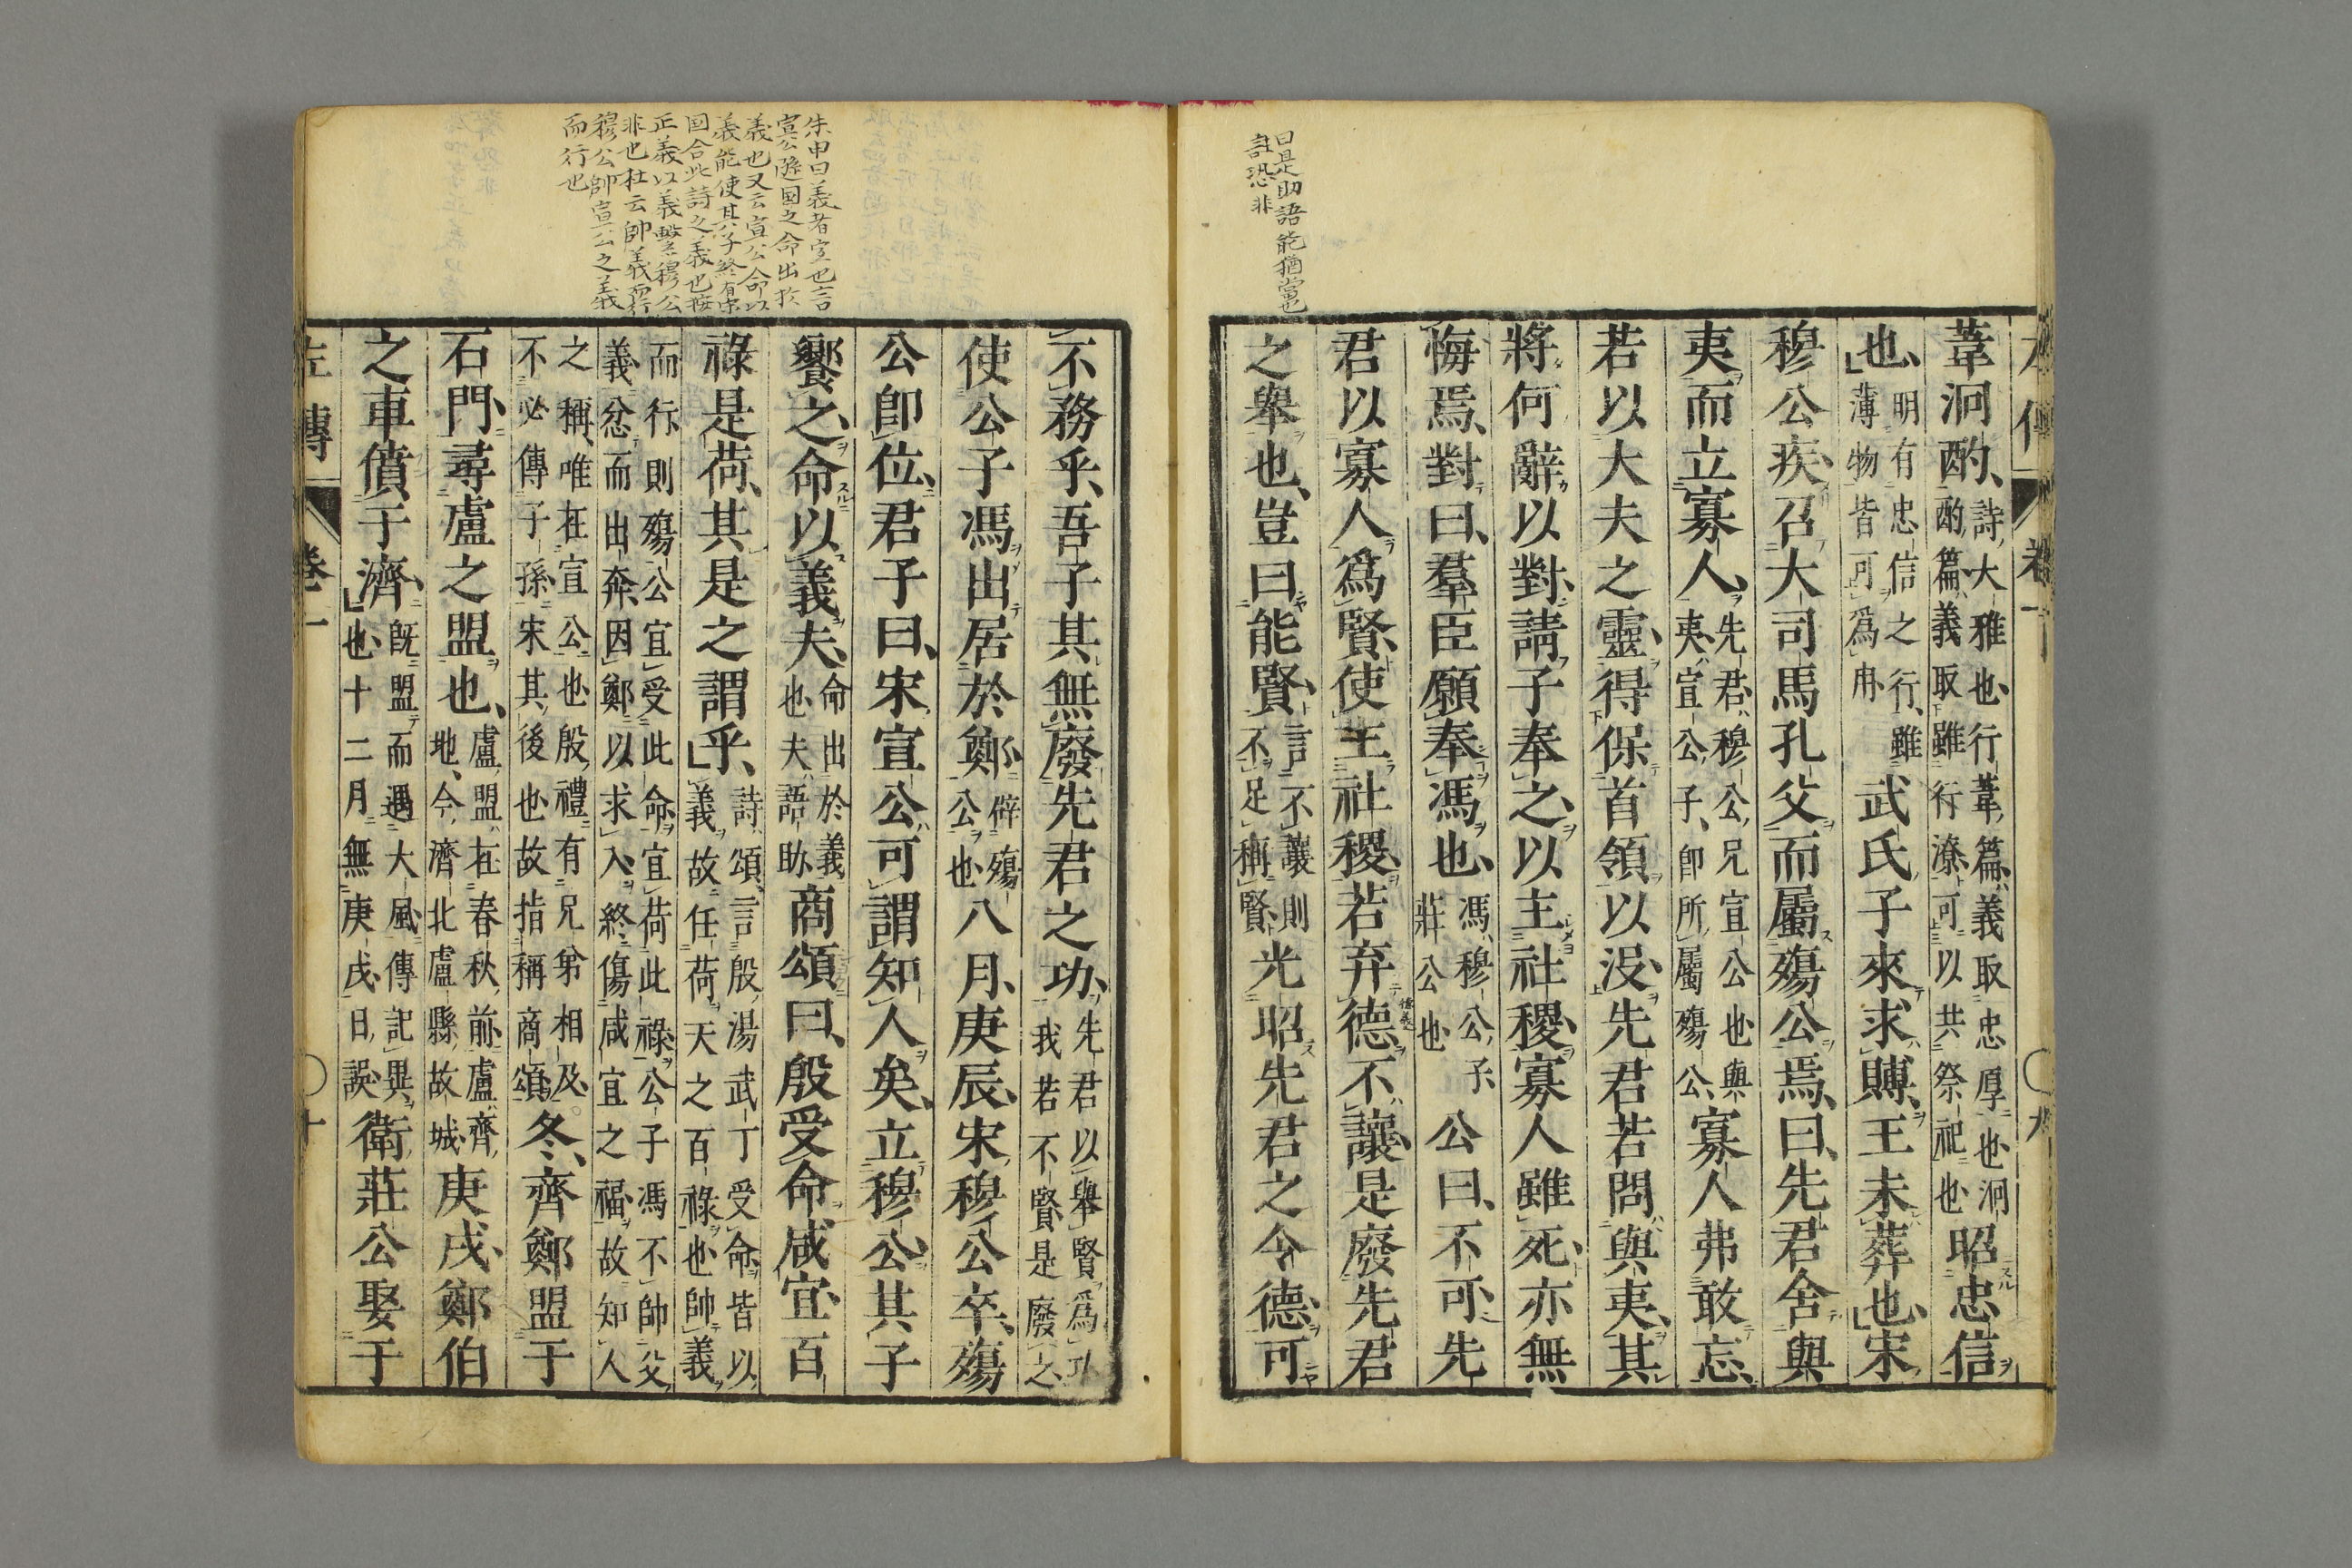 左傳 卷一 九
葦泂酌、詩大雅也行葦篇義取忠厚也泂
酌篇義取雖行潦可以共祭祀也昭忠信
也、明有忠信之行、雖
薄物皆可爲用武氏子來求賻、王未葬也、宋
穆公疾、召大司馬孔父而屬殤公焉、曰、先君舍與
夷而立寡人、先君穆公兄宣公也與
夷宣公子、卽所屬殤公、寡人弗敢忘、
若以大夫之靈、得保首領以沒、先君若問與夷、其
將何辭以對、請子奉之、以主社稷、寡人雖死、亦無
悔焉、對曰、羣臣願奉馮也、馮穆公子
莊公也公曰、不可、先
君以寡人爲賢、使主社稷、若弃德不讓、是廢先君
之舉也、豈曰能賢、言不讓則
不足稱賢光昭先君之令德、可
曰是助語能猶當也
註恐非
不務乎、吾子其無廢先君之功、先君以舉賢爲功
我若不賢是廢之
使公子馮出居於鄭、辟殤
公也八月、庚辰、宋穆公卒、殤
公卽位、君子曰、宋宣公、可謂知人矣、立穆公、其子
饗之、命以義夫、命出於義
也夫、語助商頌曰、殷受命咸宜、百
祿是荷、其是之謂乎、詩頌、言殷湯武丁受命皆以
義故任荷天之百祿也帥義
而行、則殤公宜受此命宜荷此祿公子馮不帥父
義忿而出奔、因鄭以求入終傷咸宜之福、故知人
之稱、唯在宣公也殷禮有兄弟相及、
不必傳子孫宋其後也故指稱商頌冬、齊鄭盟于
石門、尋盧之盟也、盧盟在春秋前盧齊
地、今濟北盧縣故城庚戌、鄭伯
之車僨于濟、旣盟而遇大風傳記異
也十二月無庚戌日誤衛莊公娶于
朱申曰義者宜也言
義也又云宣公命以
義能使其公子終有宋
国合此詩之義也按
正義以義繫穆公
非也杜云帥義而行
穆公帥宣公之義
而行也
左傳 卷一 十